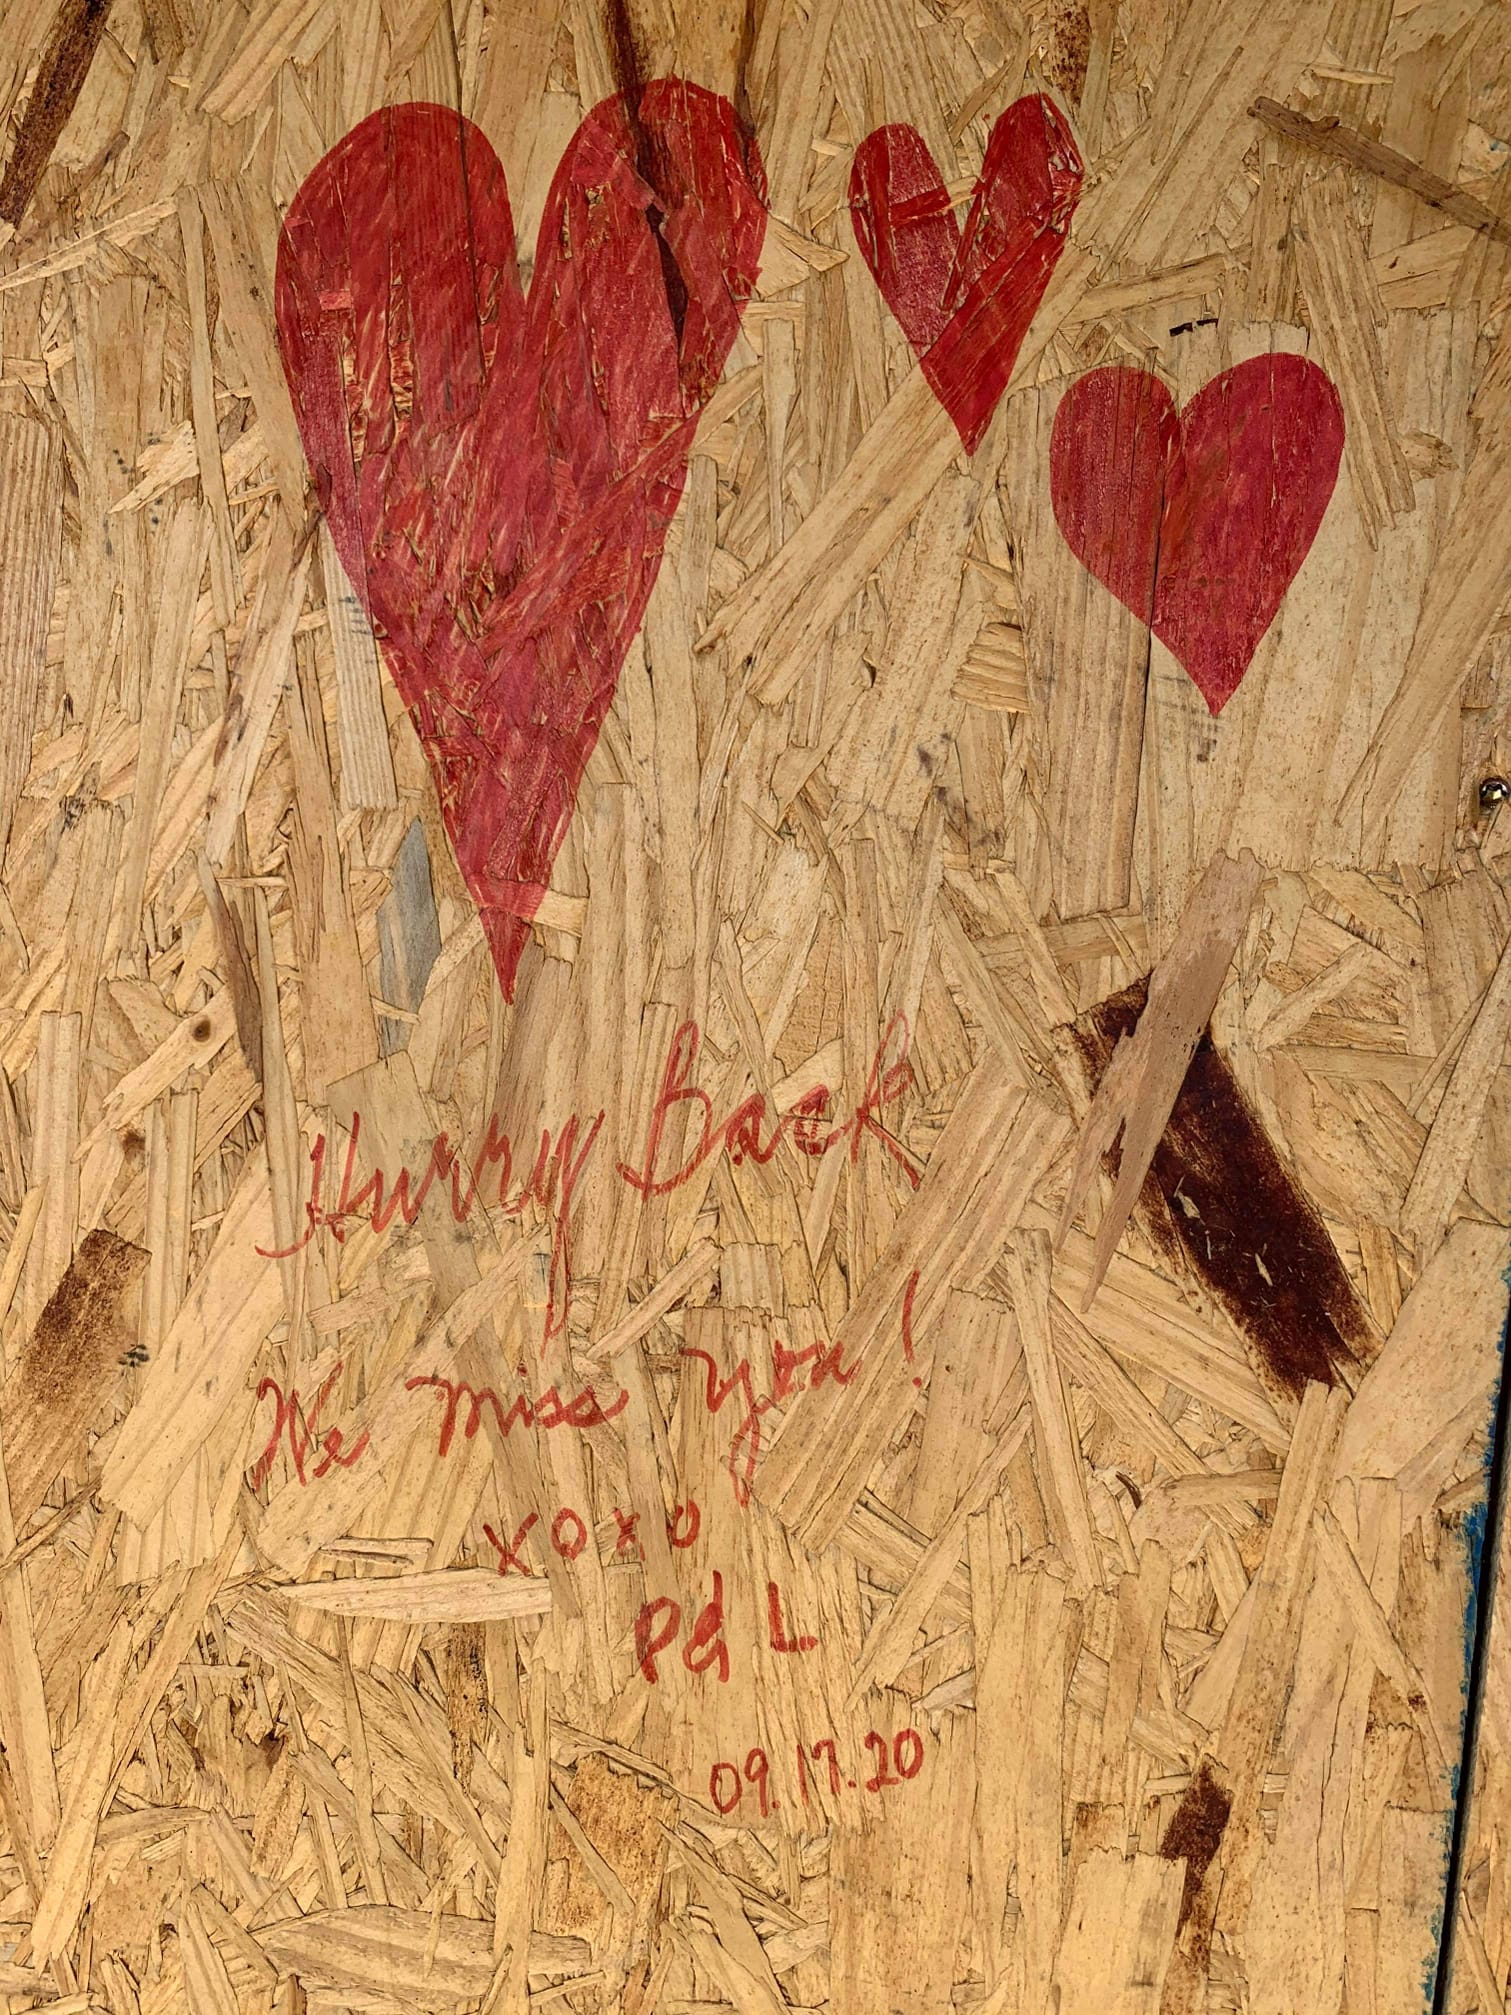 Hurry Back
We miss you!
xoxo
P & L
09.17.20